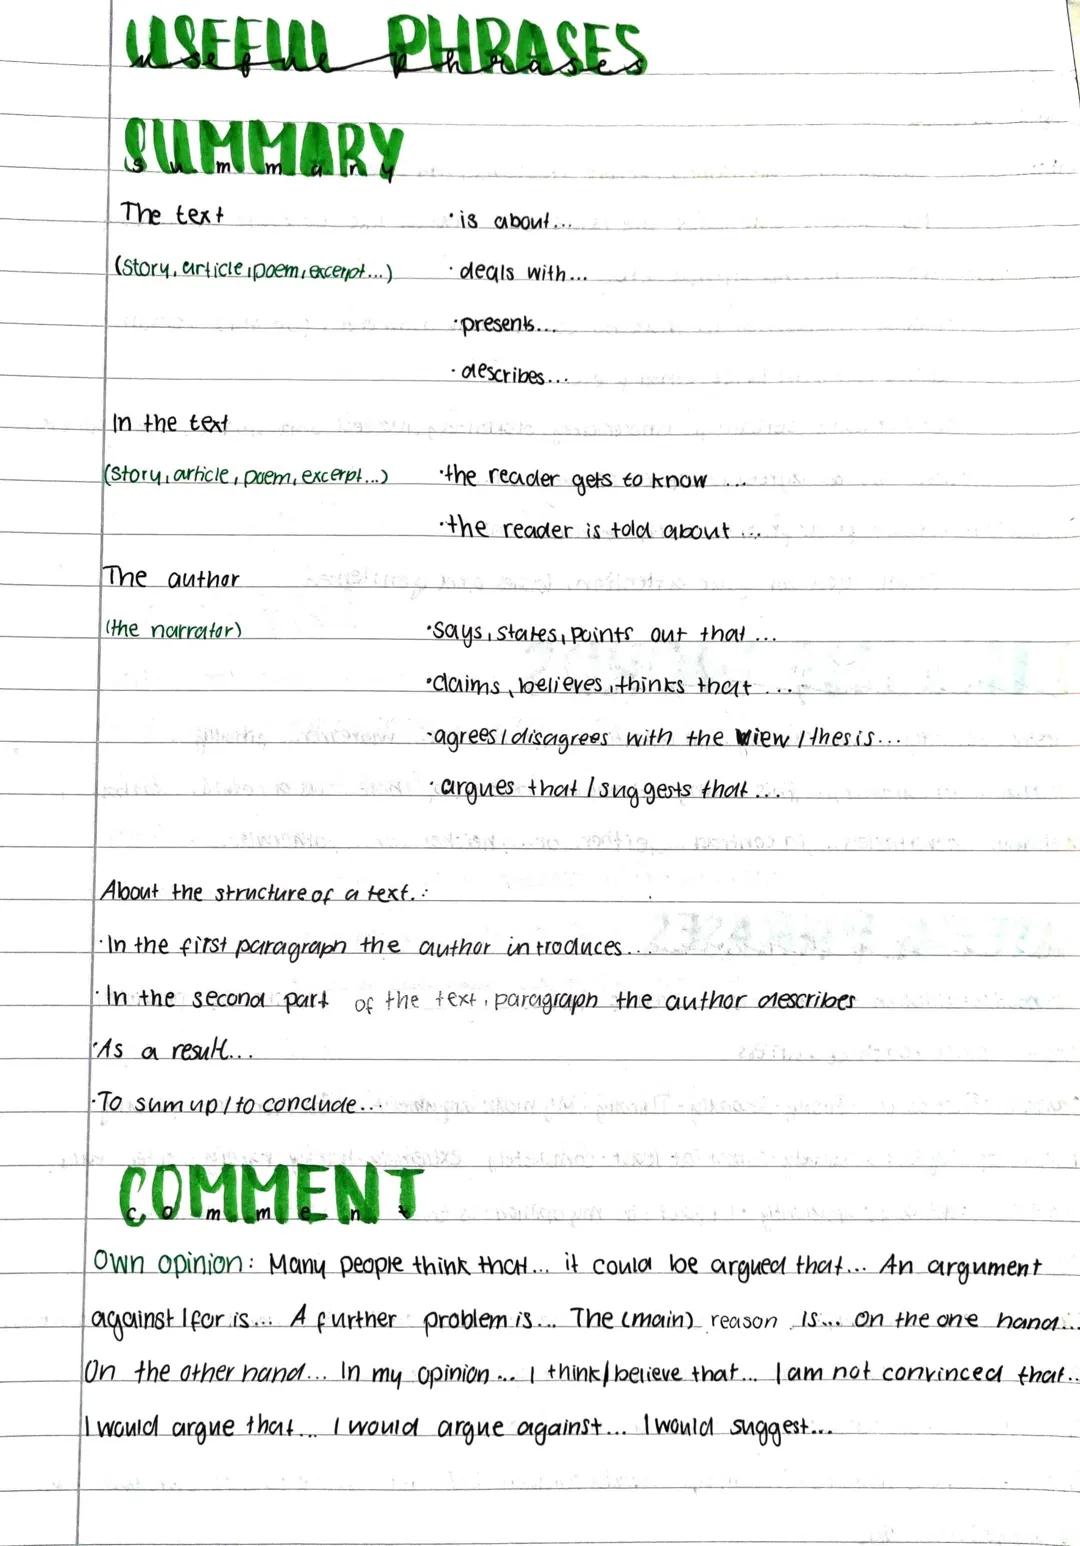 USEFUL PHRASES
useful phrases
SUMMARY
summary
The text · is about...
(story, article, poem, excerpt...) · deals with...
· presents...
· describes...
In the text
(story, article, poem, excerpt...) · the reader gets to know ...
· the reader is told about ...
The author
(the narrator) · says, states, points out that ...
· claims, believes, thinks that ...
· agrees / disagrees with the view / thesis...
· argues that / suggests that ...
About the structure of a text.:
· In the first paragraph the author introduces...
· In the second part of the text, paragraph the author describes
· As a result...
· To sum up / to conclude...
COMMENT
comment
Own opinion: Many people think that... it could be argued that... An argument
against / for is... A further problem is... The (main) reason is... On the one hand...
On the other hand... In my opinion... I think/believe that... I am not convinced that...
I would argue that... I would argue against... I would suggest...